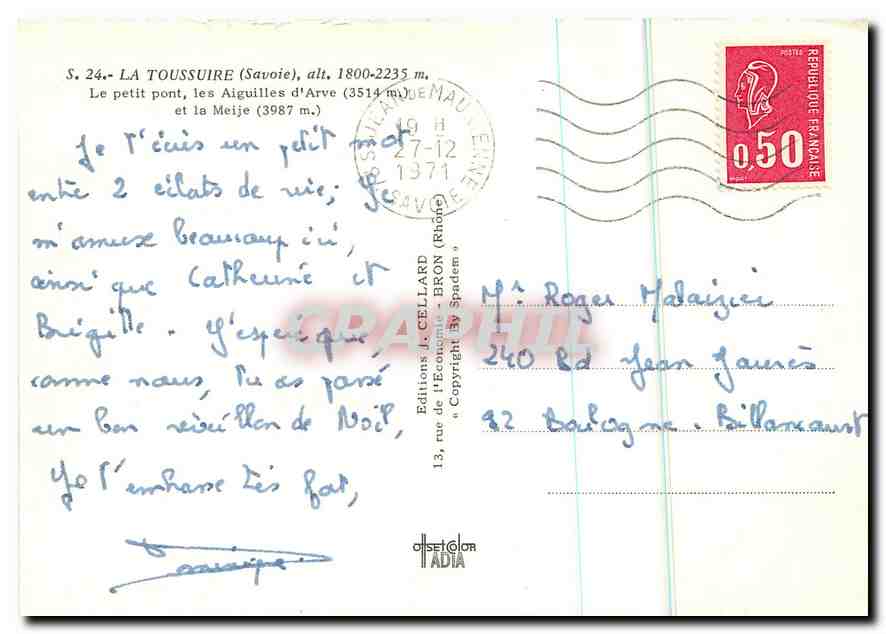 S. 24.- LA TOUSSUIRE (Savoie), alt. 1800-2235 m.
Le petit pont, les Aiguilles d'Arve (3514 m.)
et la Meije (3987 m.)
Je t'écris un petit mot
entre 2 éclats de rire; Je
m'amuse beaucoup ici,
ainsi que Catherine et
Brigitte. J'espère que,
comme nous, tu as passé
un bon réveillon de Noël,
Je t'embrasse très fort,
Editions J. CELLARD
13, rue de l'Economie - BRON (Rhône)
« Copyright By Spadem »
OffsetColor
IADIA
73 ST JEAN DE MAURIENNE
19 H
27-12
1971
SAVOIE
POSTES
REPUBLIQUE FRANCAISE
0,50
Mr Roger
240 Bd Jean Jaurès
92 Boulogne-Billancourt
CPAPHIL